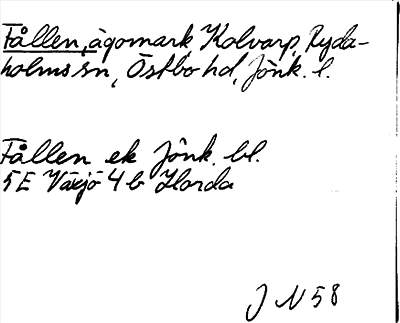 Fållen, ägomark, Kolvarp, Ryda-
holms sn, Östbo hd, Jönk. l.
Fållen ek Jönk. bl.
5E Växjö 4b Horda
J N 58